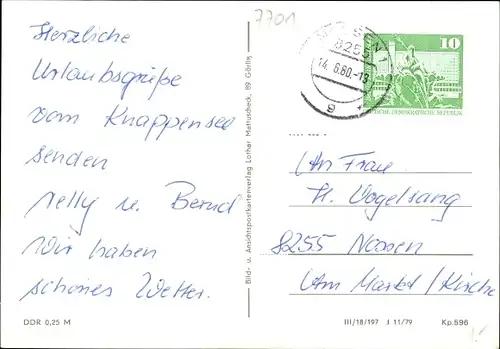 7701
Herzliche
Urlaubsgrüße
vom Knappensee
senden
Nelly u. Bernd
Wir haben
schönes Wetter.
DDR 0,25 M
Bild- u. Ansichtspostkartenverlag Lothar Mattuscheck, 89 Görlitz
8255
14.6.80.-13
g
10
DEUTSCHE DEMOKRATISCHE REPUBLIK
An Frau
H. Vogelsang
8255 Nossen
Am Markt/Kirche
III/18/197 J 11/79 Kp.596